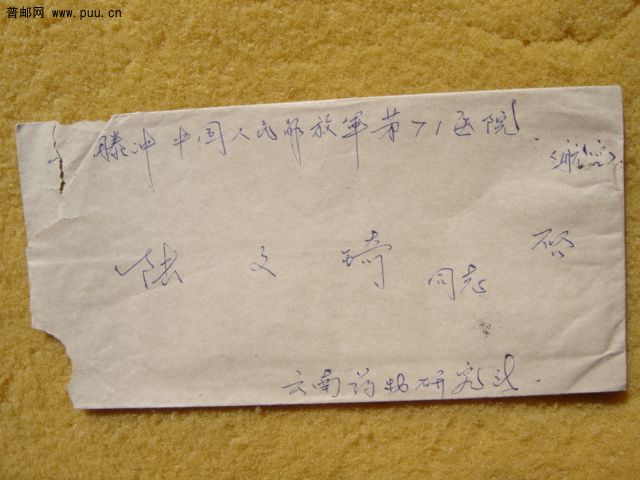 普邮网 www.puu.cn
腾冲 中国人民解放軍第71医院
<航空>
陆文琦 同志 启
云南药物研究